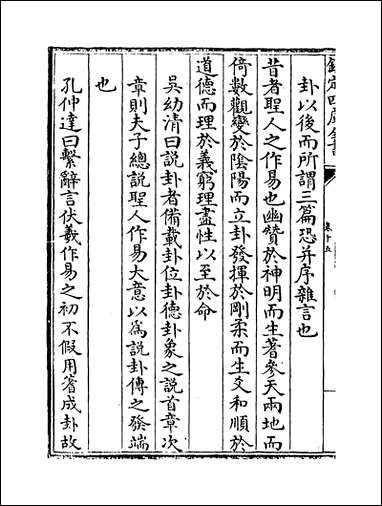 欽定四庫全書
卷十五
卦以後而所謂三篇恐并序雜言也
昔者聖人之作易也幽贊於神明而生蓍參天兩地而
倚數觀變於陰陽而立卦發揮於剛柔而生爻和順於
道德而理於義窮理盡性以至於命
吳幼清曰説卦者備載卦位卦德卦象之説首章次
章則夫子總説聖人作易大意以為説卦傳之發端
也
孔仲達曰繫辭言伏羲作易之初不假用蓍成卦故